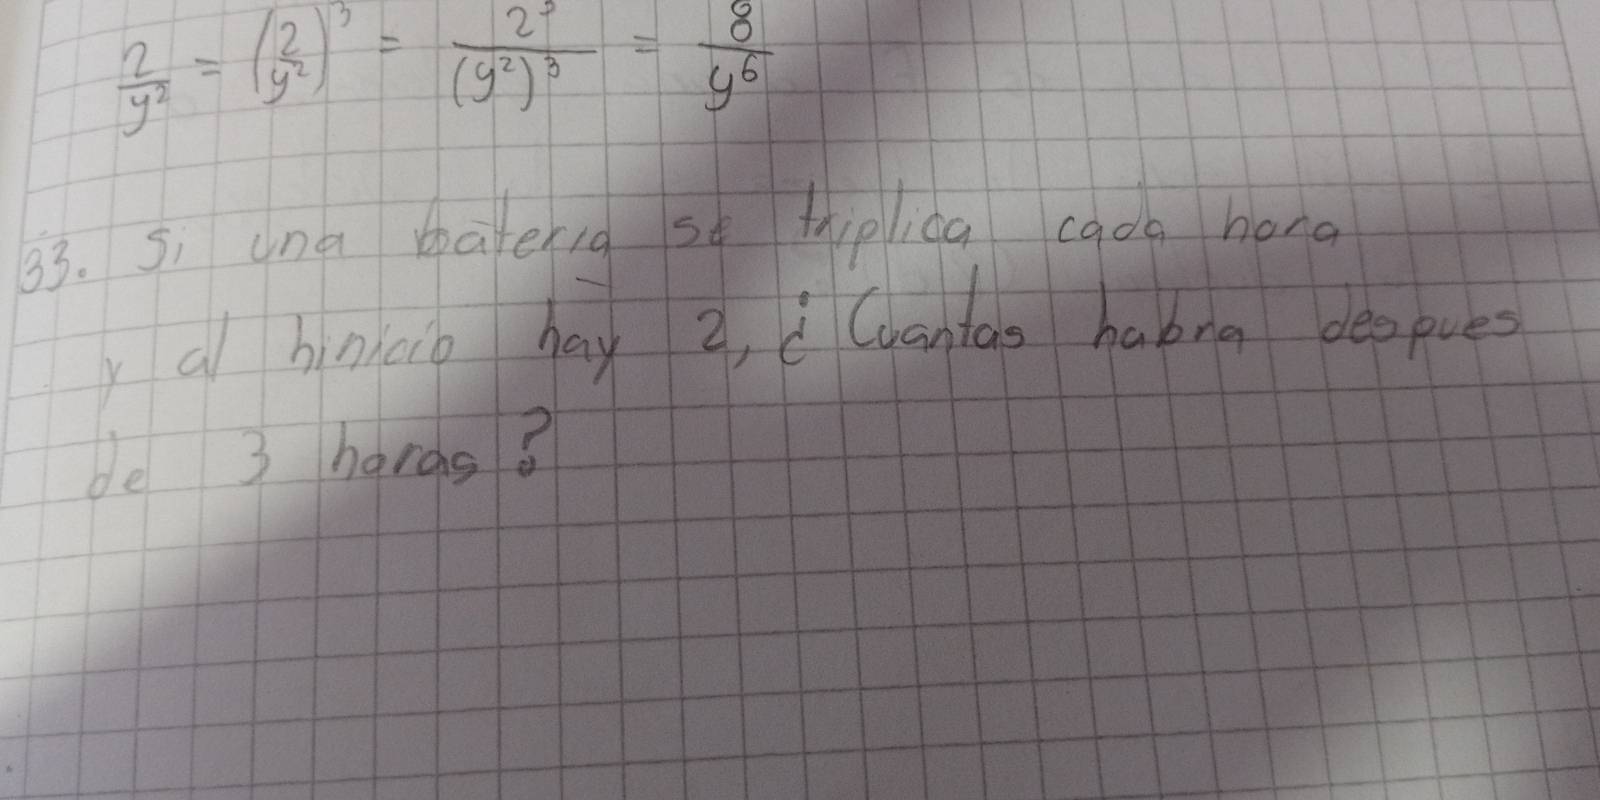 2/y² = (2/y²)³ = 2³/(y²)³ = 8/y⁶
33. Si una bateria se triplica cada hora
y al hinicio hay 2, ¿Cuantas habra despues
de 3 horas?